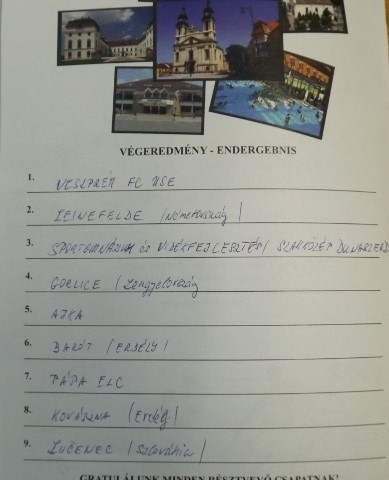 VÉGEREDMÉNY - ENDERGEBNIS
1. VESZPRÉM FC USE
2. LEINEFELDE /Németország/
3. SPORTGIMNÁZIUM és VIDÉKFEJLESZTÉSI SZAKKÖZÉP DUNASZERD
4. GORLICE /Lengyelország
5. AJKA
6. BARÓT /ERDÉLY/
7. PÁPA ELC
8. KOVÁSZNA (Erdély)
9. LUČENEC /Szlovákia/
GRATULÁLUNK MINDEN RÉSZTVEVŐ CSAPATNAK!